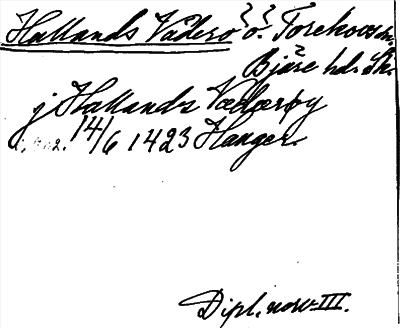 Hallands Väderö ö. Torekovs sn.
Bjäre hd. Sk.
j Hallands Wædærøy
14/6 1423 Hanger.
Dipl. norv III.